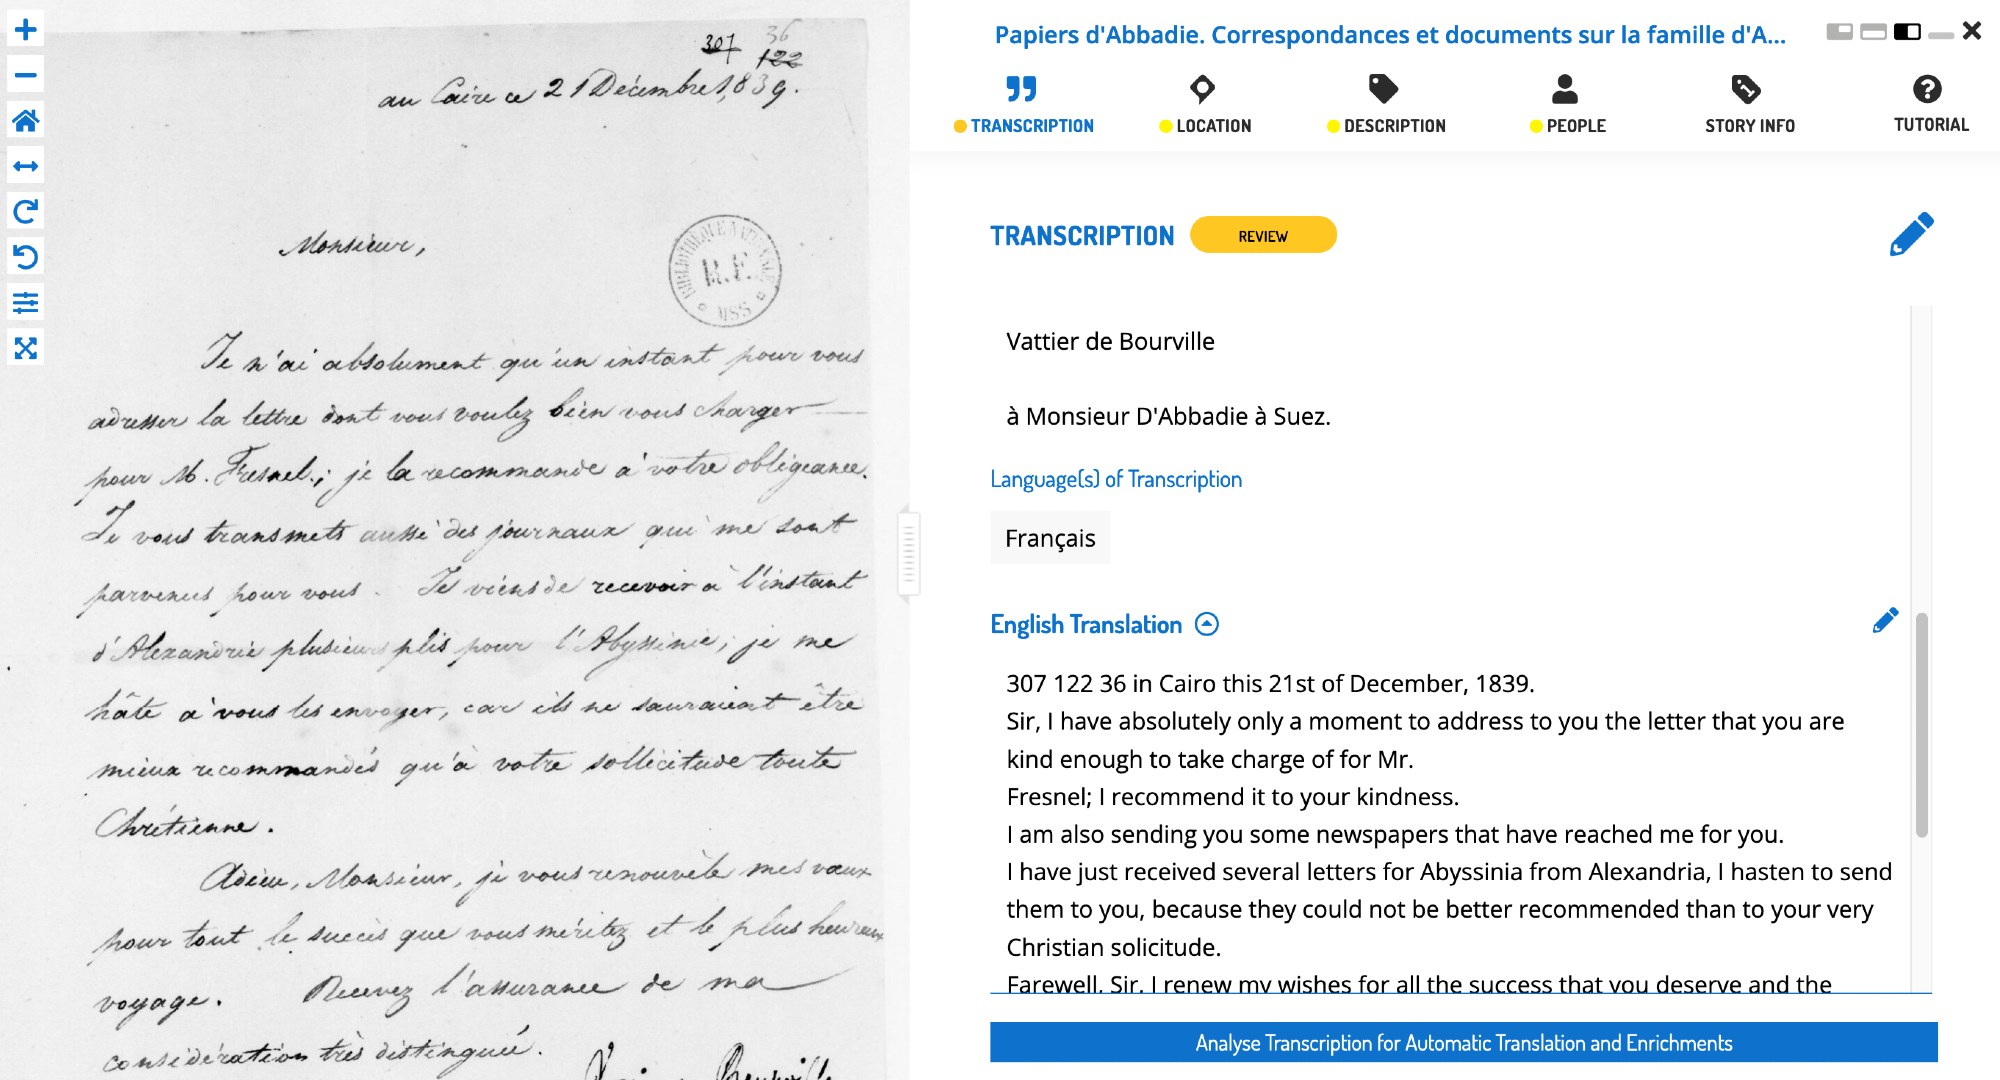 307
36
122
au Caire ce 21 Décembre 1839.
Monsieur,
BIBLIOTHEQUE NATIONALE
R.F.
MSS
Je n'ai absolument qu'un instant pour vous
adresser la lettre dont vous voulez bien vous charger
pour M. Fresnel; je la recommande à votre obligeance.
Je vous transmets aussi des journaux qui me sont
parvenus pour vous. Je viens de recevoir à l'instant
d'Alexandrie plusieurs plis pour l'Abyssinie; je me
hâte à vous les envoyer, car ils ne sauraient être
mieux recommandés qu'à votre sollicitude toute
Chrétienne.
Adieu, Monsieur, je vous renouvèle mes vœux
pour tout le succès que vous méritez et le plus heureux
voyage. Recevez l'assurance de ma
considération très distinguée.
Papiers d'Abbadie. Correspondances et documents sur la famille d'A...
TRANSCRIPTION
LOCATION
DESCRIPTION
PEOPLE
STORY INFO
TUTORIAL
TRANSCRIPTION REVIEW
Vattier de Bourville
à Monsieur D'Abbadie à Suez.
Language(s) of Transcription
Français
English Translation
307 122 36 in Cairo this 21st of December, 1839.
Sir, I have absolutely only a moment to address to you the letter that you are
kind enough to take charge of for Mr.
Fresnel; I recommend it to your kindness.
I am also sending you some newspapers that have reached me for you.
I have just received several letters for Abyssinia from Alexandria, I hasten to send
them to you, because they could not be better recommended than to your very
Christian solicitude.
Farewell, Sir, I renew my wishes for all the success that you deserve and the
Analyse Transcription for Automatic Translation and Enrichments